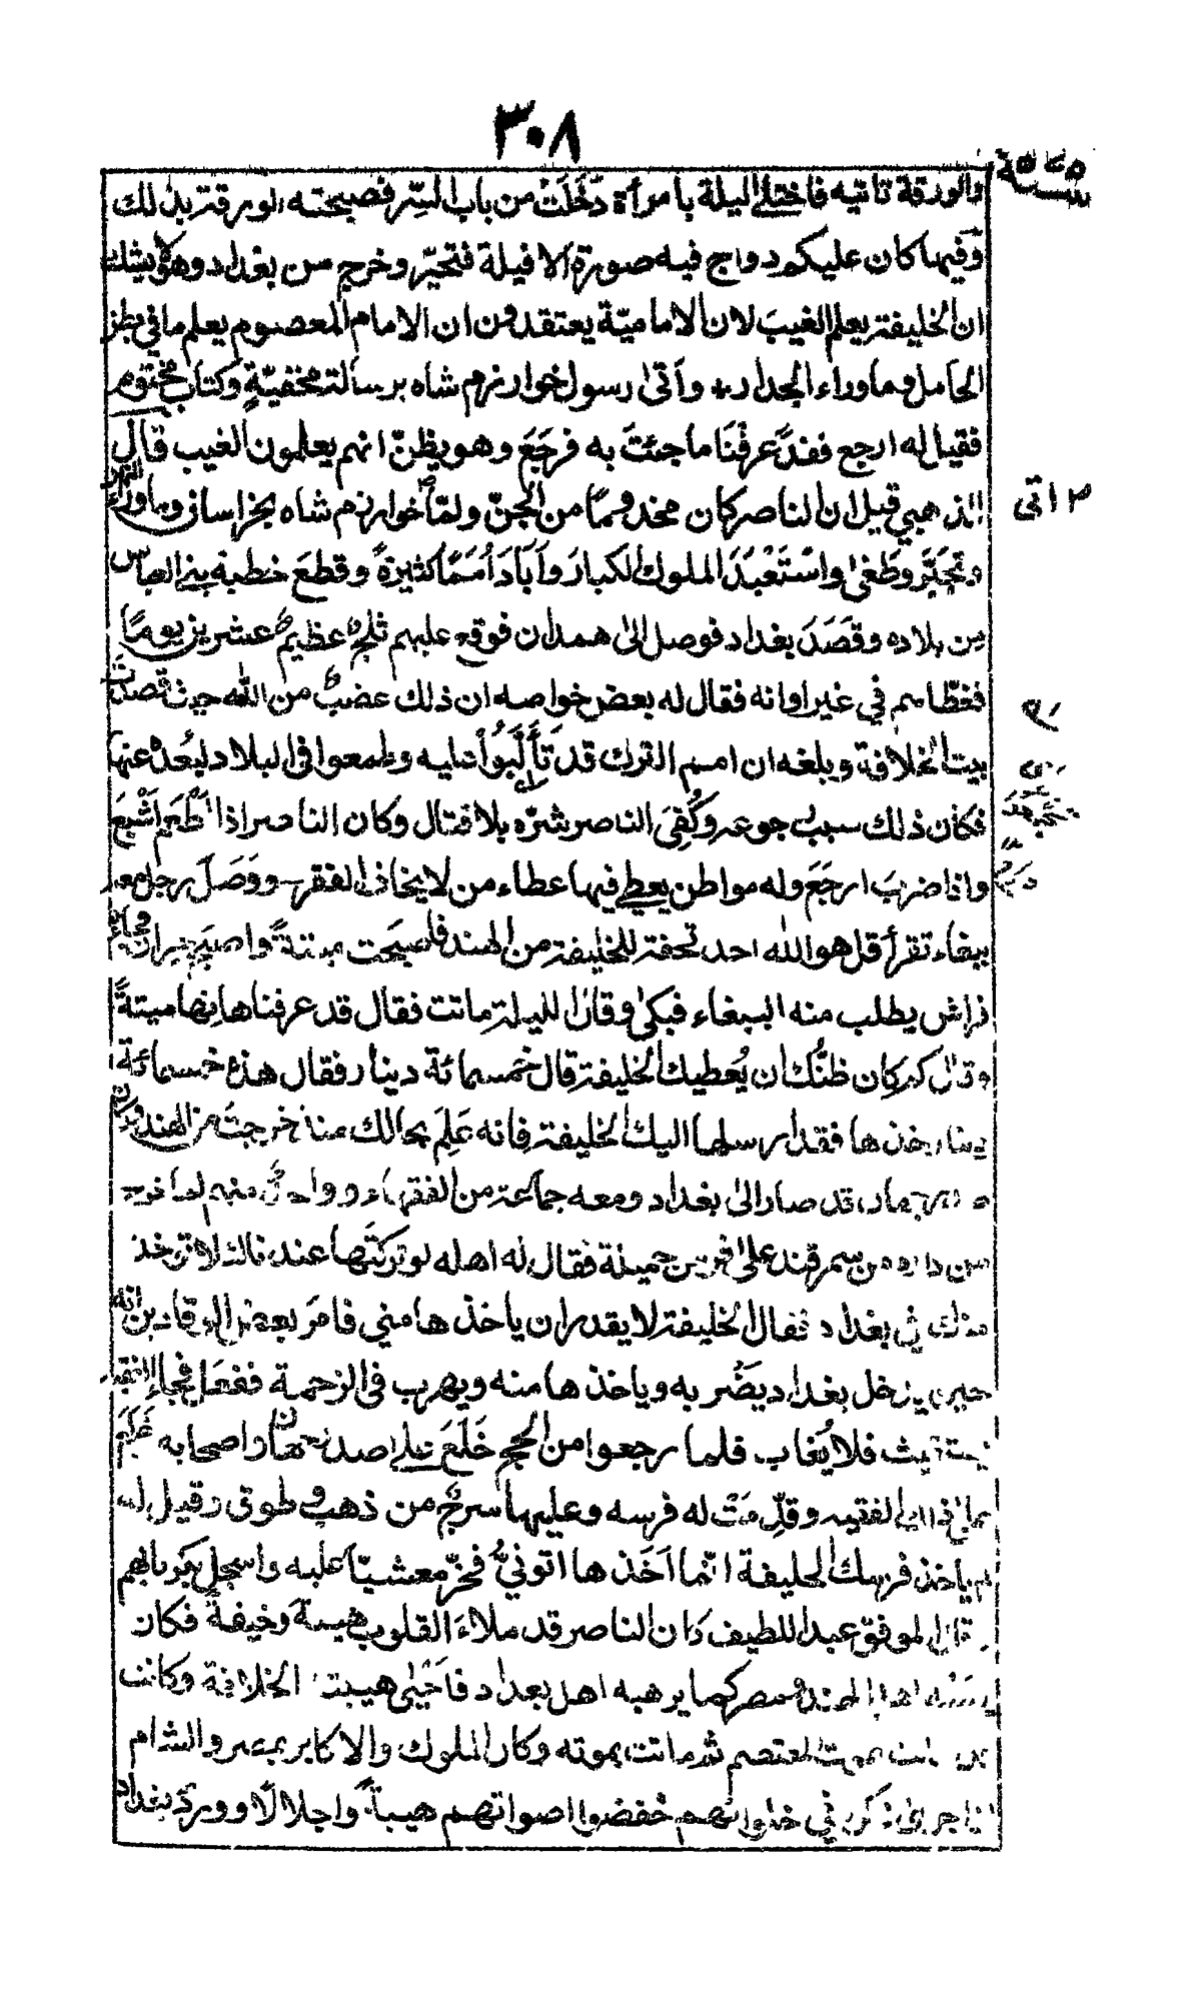 ٣٠٨
سنة ٥٧٥
والورقة تاتيه فاختلى ليلة بامرأة دخلت من باب السر فصبحته الورقة بذلك
وفيها كان عليكم دواج فيه صورة الافيلة فتحيّر وخرج من بغداد وهو لا يشك
ان الخليفة يعلم الغيب لان الاماميّة يعتقدون ان الامام المعصوم يعلم ما في بطن
الحامل وما وراء الجدار واتى رسول خوارزم شاه برسالة مخفيّة وكتاب مختوم
فقيل له ارجع فقد عرفنا ما جئت به فرجع وهو يظنّ انهم يعلمون الغيب قال
الذهبي قيل ان الناصر كان مخدوما من الجنّ ولمّا خوارزم شاه بخراسان وما وراء النهر
وتجبّر وطغى واستعبد الملوك الكبار وأباد أمما كثيرة وقطع خطبة بني العباس
من بلاده وقصد بغداد فوصل الى همدان فوقع عليهم ثلج عظيم عشرين يوما
فغطاهم في غير اوانه فقال له بعض خواصه ان ذلك غضب من الله حيث قصدت
بيت الخلافة وبلغه ان امم الترك قد تألّبوا عليه وطمعوا في البلاد لبعده عنها
فكان ذلك سبب رجوعه وكفي الناصر شرّه بلا قتال وكان الناصر اذا أطعم أشبع
واذا ضرب اوجع وله مواطن يعطي فيها عطاء من لا يخاف الفقر ووصل رجل معه
ببغاء تقرأ قل هو الله احد تحفة للخليفة من الهند فاصبحت ميتة واصبح حيران فجاءه
فراش يطلب منه الببغاء فبكى وقال الليلة ماتت فقال قد عرفنا هاتها ميتةً
وقال كم كان ظنّك ان يعطيك الخليفة قال خمسمائة دينار فقال هذه خمسمائة
دينار خذها فقد ارسلها اليك الخليفة فانه علم بحالك منذ خرجت من الهند وكان
صدر جهان قد صار الى بغداد ومعه جماعة من الفقهاء وواحد منهم لما خرج
من داره من سمرقند على فرس جميلة فقال له اهله لو تركتها عندنا لئلا تؤخذ
منك في بغداد فقال الخليفة لا يقدر ان ياخذها مني فامر بعض الوقادين انه
حين يدخل بغداد يضربه وياخذها منه ويهرب في الزحمة ففعل فجاء الفقيه
يستغيث فلا يغاث فلما رجعوا من الحج خلع على صدر جهان واصحابه
الفقيه وقدّمت له فرسه وعليها سرج من ذهب وطوق وقيل له
لم ياخذ فرسك الخليفة انّما اخذها اتوني فخرّ مغشيّا عليه واسجل بكرماتهم
قال الموفق عبد اللطيف كان الناصر قد ملاء القلوب هيبة وخيفة فكان
يرهبه اهل الهند ومصر كما يرهبه اهل بغداد فاحيى هيبة الخلافة وكانت
قد ماتت بموت المعتصم ثم ماتت بموته وكان الملوك والاكابر بمصر والشام
اذا جرى ذكره في خلواتهم خفضوا اصواتهم هيبة واجلالا وورد بغداد
٣ اتى